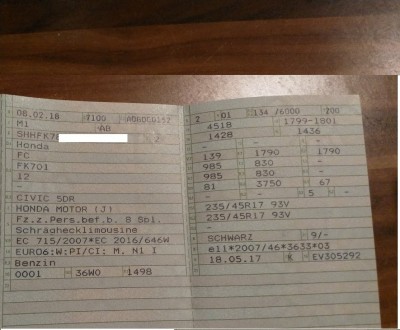 08.02.18 7100
M1 AB
SHHFK7
Honda
FC
FK701
12
-
CIVIC 5DR
HONDA MOTOR (J)
Fz.z.Pers.bef.b. 8 Spl.
Schräghecklimousine
EC 715/2007*EC 2016/646W
EURO6:W:PI/CI: M, N1 I
Benzin
0001 36W0 1498
2 01 134 /6000 200
4518 1799-1801
1428 1436
- - -
139 1790 1790
985 830 -
985 830 -
81 3750 67
- - 5 -
235/45R17 93V
235/45R17 93V
-
SCHWARZ 9/-
e11*2007/46*3633*03
18.05.17 K EV305292